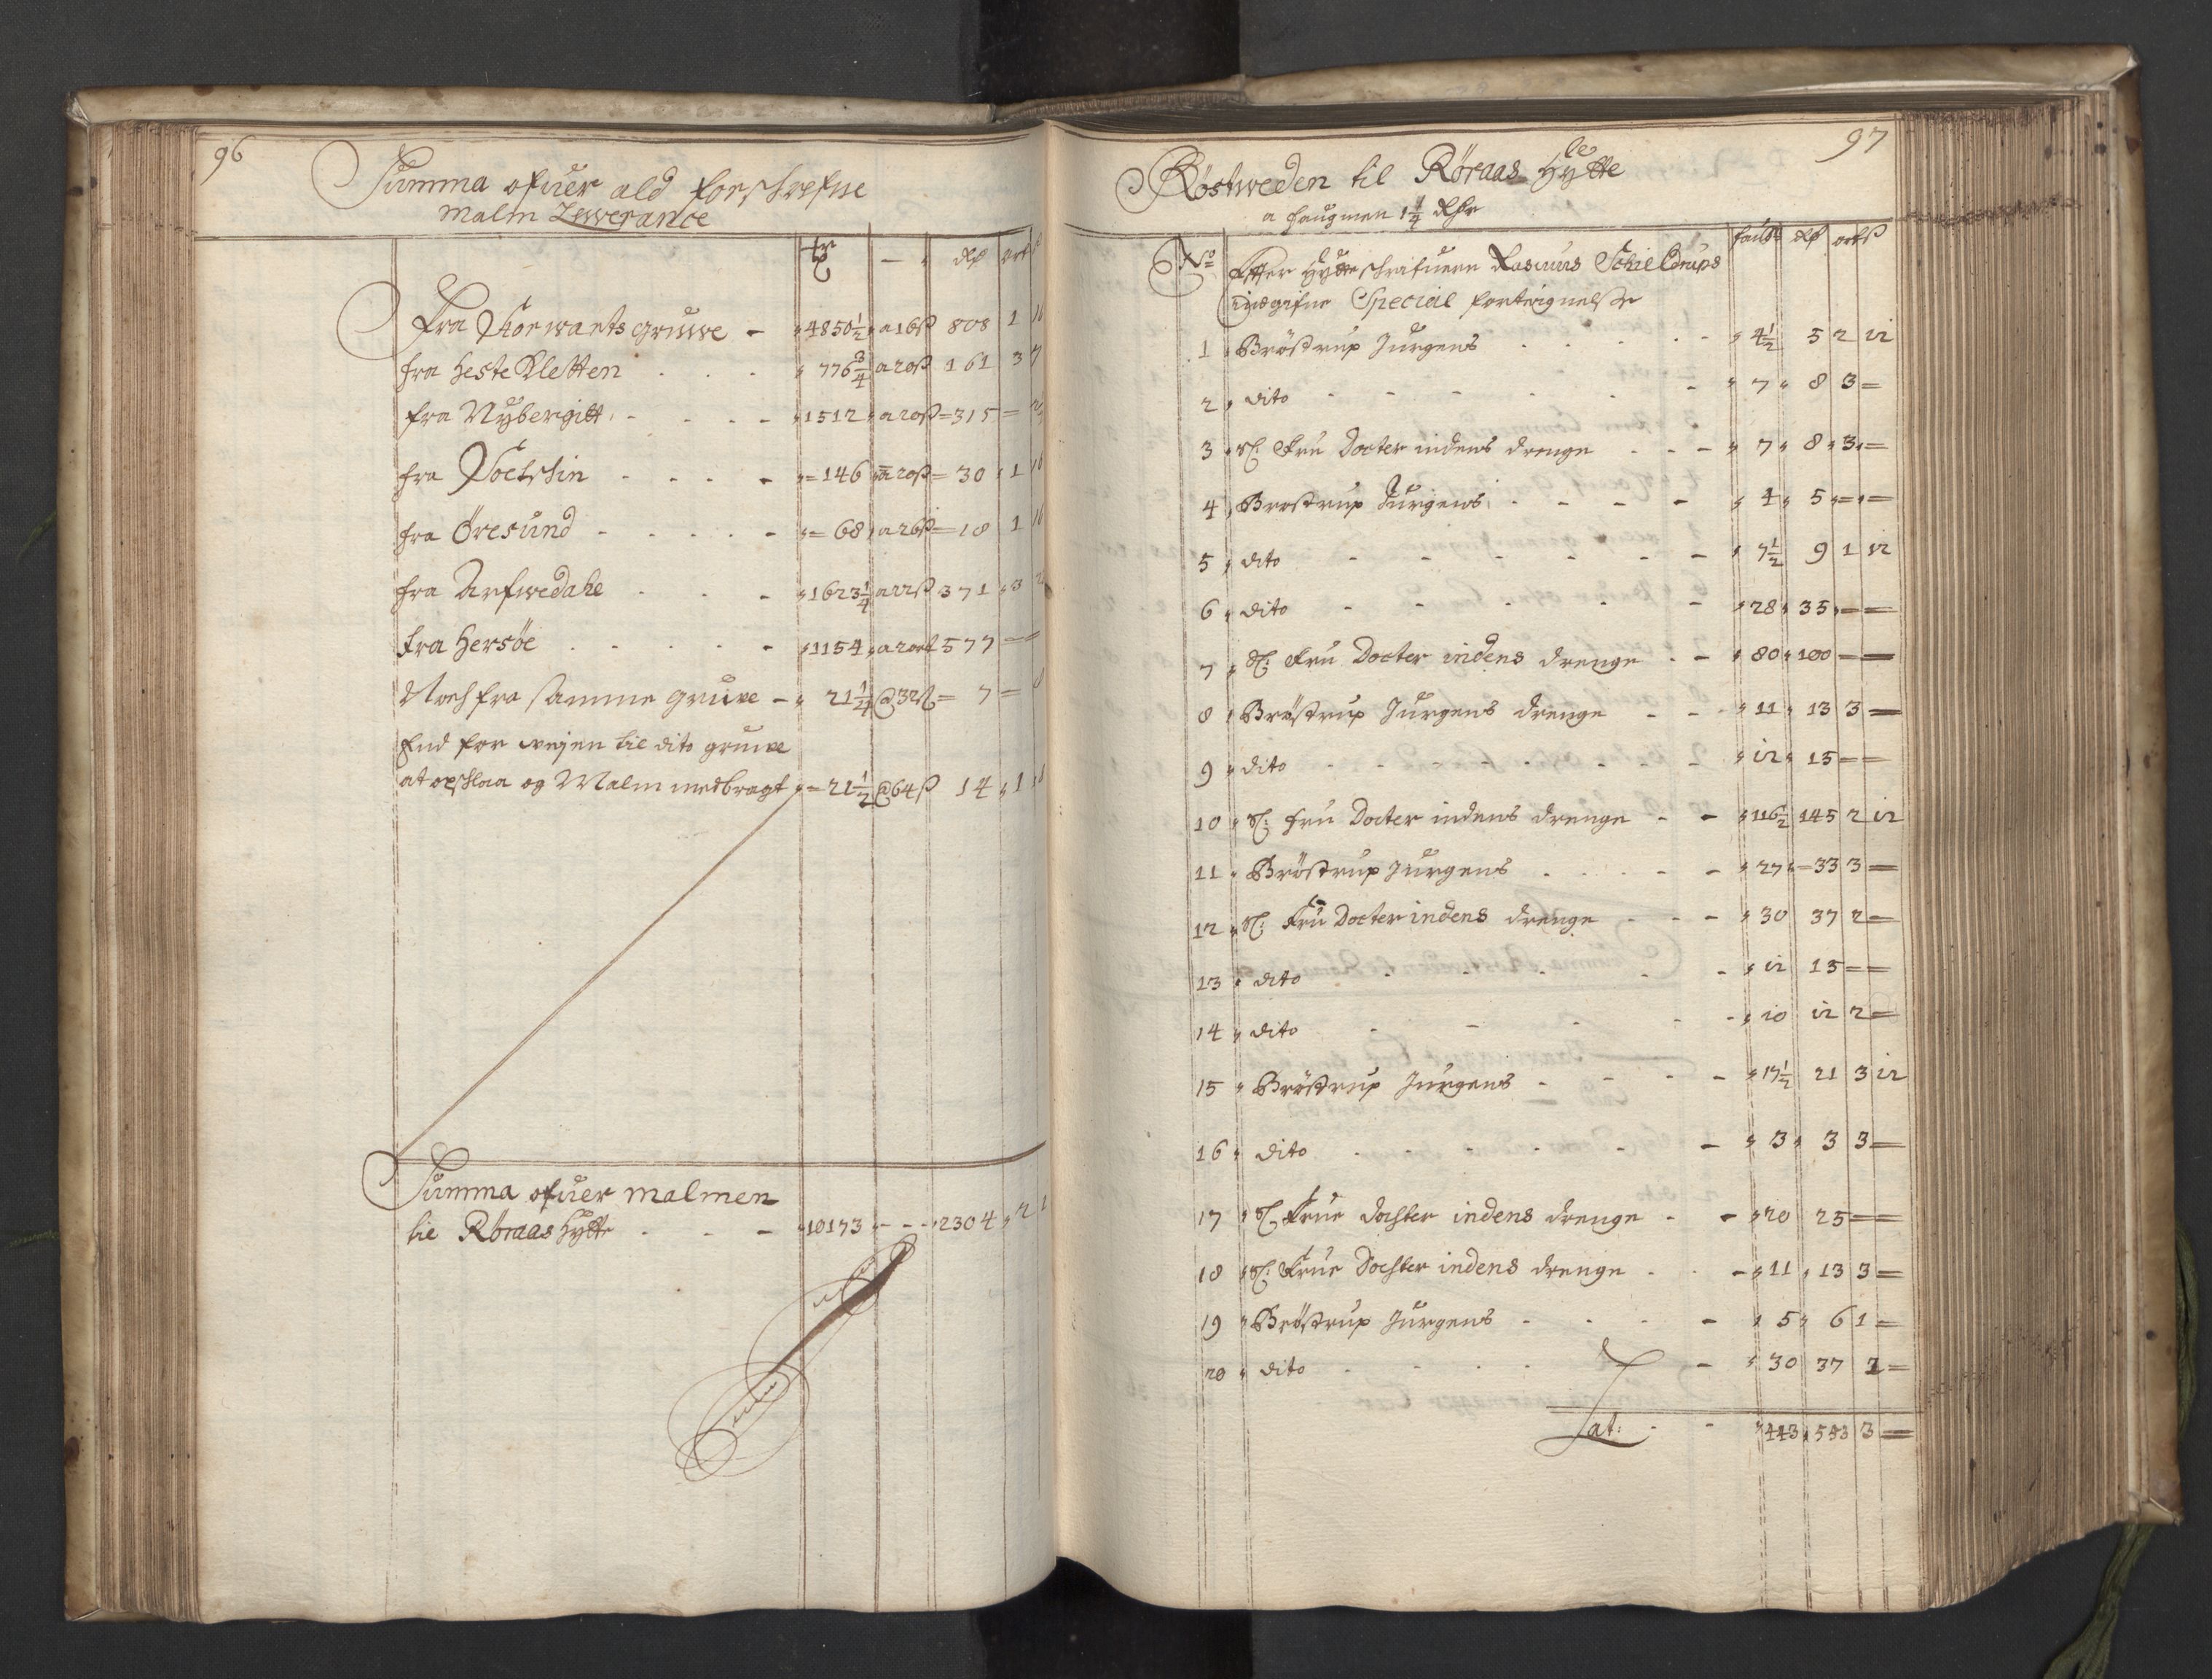 96
Summa ofuer ald forschrefne
Malm Lewerance
rd ort
Fra Storwarts gruwe - 4850½ a 16ß 808 1
fra Heste Kletten - 776¾ a 20ß 161 3
fra Nybergitt - 1512 a 20ß = 315 =
fra - = 146 a 20ß = 30 1
fra Öresund - = 68 a 26ß = 18 1
fra Arfwedahl - 1623¼ a 22ß 371 3
fra Hersöe - 1154 a 2 ort 577 =
Noch fra samme gruwe - 21¼ @ 32ß = 7 =
End for wejen til dito gruwe
at opschlaa og Malm medbragt = 21½ @ 64ß 14 1
Summa ofuer malmen
til Röraas Hytte - 10173 - - 2304 2
97
Röstweden til Röraas Hytte
a faugnen 1¼ Rdr
No Efter Hytteschrifuern Rasmus Schieldrups faufn rd ort ß
indgifne Special forteignelße
1 Bröstrup Jurgens - 4½ 5 2 12
2 dito - 7 8 3 =
3 Sl: Fru Docter indens drenge - 7 8 3 =
4 Brostrup Jurgens - 4 5 = =
5 dito - 7½ 9 1 12
6 dito - 28 35 = =
7 Sl: Fru Docter indens drenge - 80 100 = =
8 Bröstrup Jurgens drenge - 11 13 3 =
9 dito - 12 15 = =
10 Sl: fru Docter indens drenge - 116½ 145 2 12
11 Bröstrup Jurgens - 27 = 33 3 =
12 Sl: Fru Docter indens drenge - 30 37 2 =
13 dito - 12 15 = =
14 dito - 10 12 2 =
15 Bröstrup Jurgens - 17½ 21 3 12
16 dito - 3 3 3 =
17 Sl: Frue dochter indens drenge - 20 25 = =
18 Sl: Frue Dochter indens drenge - 11 13 3 =
19 Bröstrup Jurgens - 5 6 1 =
20 dito - 30 37 2 =
Lat: - 443 553 3 =